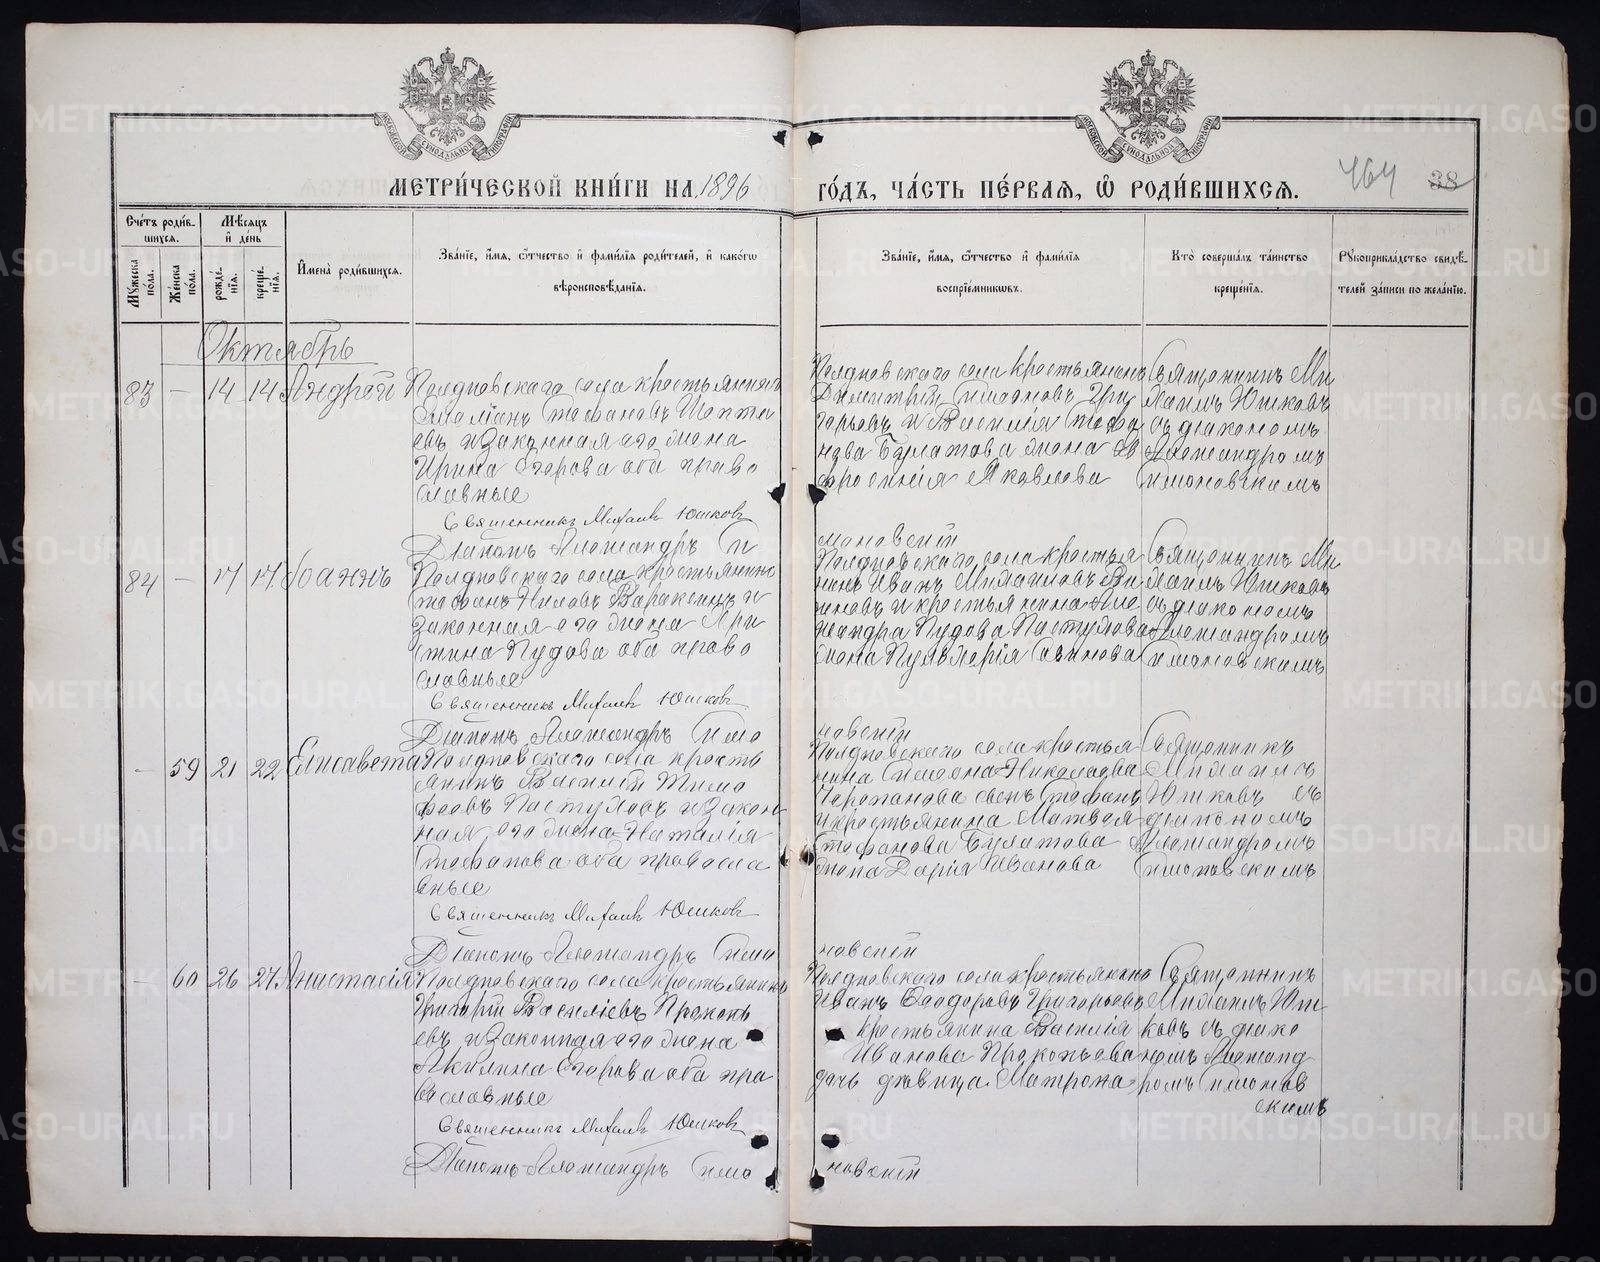 МЕТРИ́ЧЕСКОЙ КНИ́ГИ НА 1896
ГО́ДЪ, ЧА́СТЬ ПЕ́РВАѦ, Ѡ҆ РОДИ́ВШИХСѦ.
464 38
Сче́тъ роди́в-
шихся.
Мѣсяцъ
и҆ де́нь
Мꙋжеска
по́ла.
Же́нска
по́ла.
рожде́-
нїѧ.
креще́-
нїѧ.
И҆мена̀ роди́вшихсѧ.
Зва́нїе, и҆́мѧ, ѻ҆́тчество и҆ фами́лїѧ роди́телей, и҆ како́гѡ
вѣроисповѣ́данїѧ.
Зва́нїе, и҆́мѧ, ѻ҆́тчество и҆ фами́лїѧ
воспрїе́мникѡвъ.
Кто̀ соверша́лъ та́инство
креще́нїѧ.
Рꙋкоприкла́дство свидѣ́-
телей за́писи по жела́нїю.
Октябрь
83 — 14 14 Андрей
Полдневскаго села крестьянинъ
Стефановъ
евъ и законная его жена
Ирина Егорова оба право
славные
Священникъ Михаилъ Юшковъ
Дiаконъ Александръ Си
Полдневскаго села крестьянинъ
Димитрiй Симеоновъ Гри
горьевъ и Василiя Стефа
нова Булатова жена Ев
фросинiя Яковлева
моновскiй
Священникъ Ми
хаилъ Юшковъ
съ дiакономъ
Александромъ
Симоновскимъ
84 — 17 17 Іоаннъ
Полдневскаго села крестьянинъ
Стефанъ Ниловъ Варакинъ и
законная его жена Хри
стина Пудова оба право
славные
Священникъ Михаилъ Юшковъ
Дiаконъ Александръ Симо
Полдневскаго села крестья
нинъ Иванъ Михаиловъ
и крестьянина Але
ксандра Пудова Пастухова
жена Пульхерiя Саввинова
новскiй
Священникъ Ми
хаилъ Юшковъ
съ дiакономъ
Александромъ
Симоновскимъ
— 59 21 22 Елисавета
Полдневскаго села кресть
янинъ Василiй Тимо
феевъ Пастуховъ и закон
ная его жена Наталiя
Стефанова оба правосла
вные
Священникъ Михаилъ Юшковъ
Дiаконъ Александръ Симо
Полдневскаго села крестья
нина Симеона Николаева
Черепанова сынъ Стефанъ
и крестьянина Матвея
Стефанова Булатова
жена Дарiя Иванова
новскiй
Священникъ
Михаилъ
Юшковъ съ
дiакономъ
Александромъ
Симоновскимъ
— 60 26 27 Анастасiя
Полдневскаго села крестьянинъ
Григорiй Василiевъ Прокопь
евъ и законная его жена
Акилина Егорова оба пра
вославные
Священникъ Михаилъ Юшковъ
Дiаконъ Александръ Симо
Полдневскаго села крестьянинъ
Иванъ Феодоровъ Григорьевъ
крестьянина Василiя
Иванова Прокопьева
дочь дѣвица Матрона
новскiй
Священникъ
Михаилъ Юш
ковъ съ дiако
номъ Александ
ромъ Симонов
скимъ
METRIKI.GASO-URAL.RU